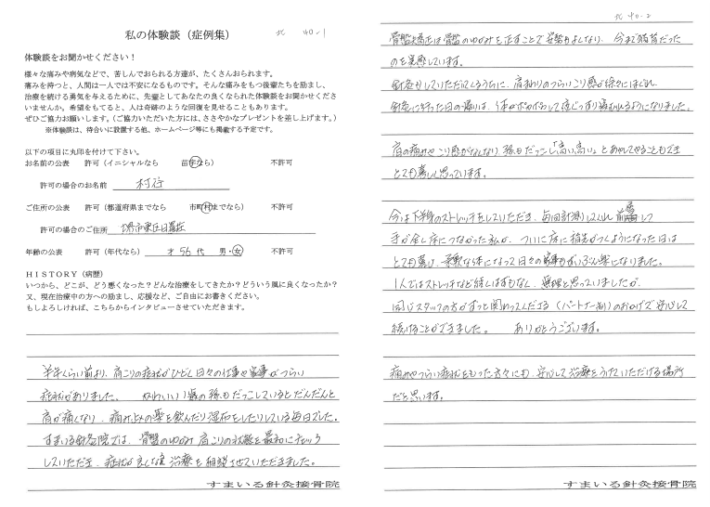 北 40-1
私の体験談（症例集）
体験談をお聞かせください！
様々な痛みや病気などで、苦しんでおられる方達が、たくさんおられます。
痛みを持つと、人間は一人では不安になるものです。そんな痛みをもつ後輩たちを励まし、
治療を続ける勇気を与えるために、先輩としてあなたの良くなられた体験談をお聞かせくださ
いませんか。希望をもてると、人は奇跡のような回復を見せることもあります。
ぜひご協力お願いします。（ご協力いただいた方には、ささやかなプレゼントを差し上げます。）
※体験談は、待合いに設置する他、ホームページ等にも掲載する予定です。
以下の項目に丸印を付けて下さい。
お名前の公表 許可（イニシャルなら 苗字なら） 不許可
許可の場合のお名前 村谷
ご住所の公表 許可（都道府県までなら 市町村までなら） 不許可
許可の場合のご住所 堺市東区日置荘
年齢の公表 許可（年代なら） 才 56 代 男・女 不許可
ＨＩＳＴＯＲＹ（病歴）
いつから、どこが、どう悪くなった？どんな治療をしてきたか？どういう風に良くなったか？
又、現在治療中の方への励まし、応援など、ご自由にお書きください。
もしよろしければ、こちらからインタビューさせていただきます。
半年くらい前より、肩こりの症状がひどく日々の仕事や家事がつらい
症状がありました。 かわいい1歳の孫もだっこしているとだんだんと
肩が痛くなり、痛み止めの薬を飲んだり湿布をしたりしている毎日でした。
すまいる針灸院では、骨盤のゆがみ 肩こりの状態を最初にチェック
していただき、症状が良くなる治療を相談させていただきました。
すまいる針灸接骨院
北 40-2
骨盤矯正は骨盤のゆがみを正すことで姿勢もよくなり、今まで猫背だった
のを実感しています。
針灸もしていただいてくうちに、肩まわりのつらいこり感が徐々にほぐれ
針灸に行った日の夜は、体がぽかぽかして ぐっすり眠れるようになりました。
肩の痛みやこり感がなくなり 孫もだっこし「高い高い」とあやしてやることもでき
とても嬉しく思っています。
今は下半身のストレッチもしていただき、毎回計測してくれ 前屈して
手が全く床につかなかった私が、ついに床に指先がつくようになった日は
とても嬉しく、柔軟な体になって日々の家事もずいぶん楽になりました。
1人ではストレッチなど続くはずもなく、無理と思っていましたが、
同じスタッフの方がずっと関わってくださる（パートナー制）のおかげで安心して
続けることができました。 ありがとうございます。
痛みやつらい症状をもった方々にも、安心して治療をうけていただける場所
だと思います。
すまいる針灸接骨院